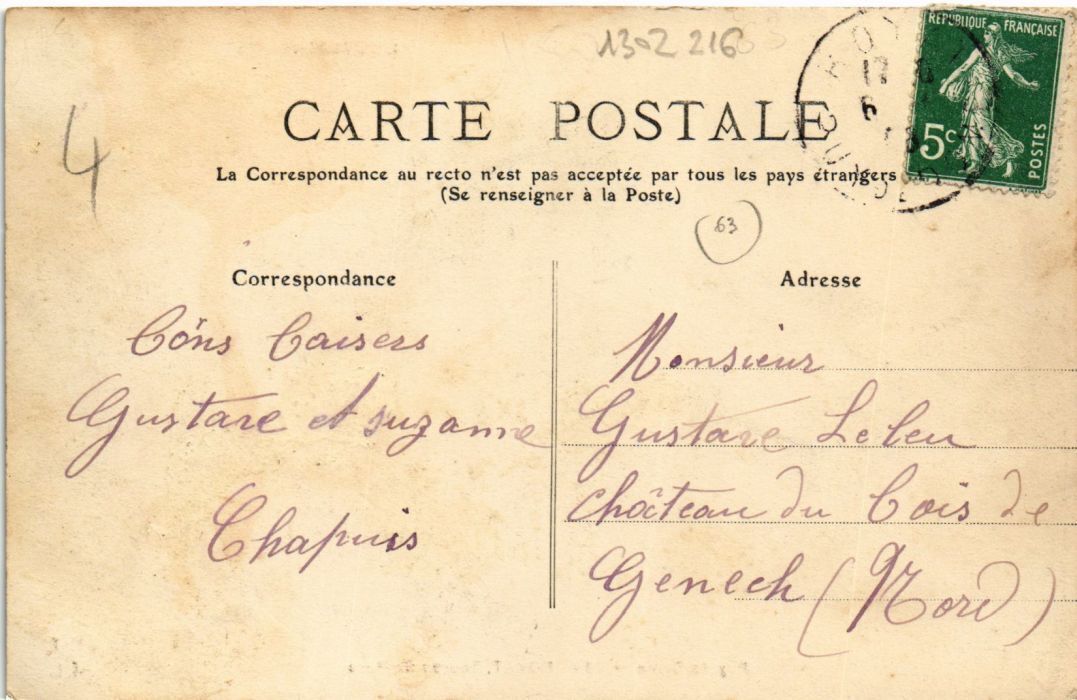 1302 216
RÉPUBLIQUE FRANÇAISE
5c
POSTES
4
CARTE POSTALE
La Correspondance au recto n'est pas acceptée par tous les pays étrangers
(Se renseigner à la Poste)
63
Correspondance
Bons Baisers
Gustave et suzanne
Chapuis
Adresse
Monsieur
Gustave Leleu
château du Bois de
Genech (Nord)